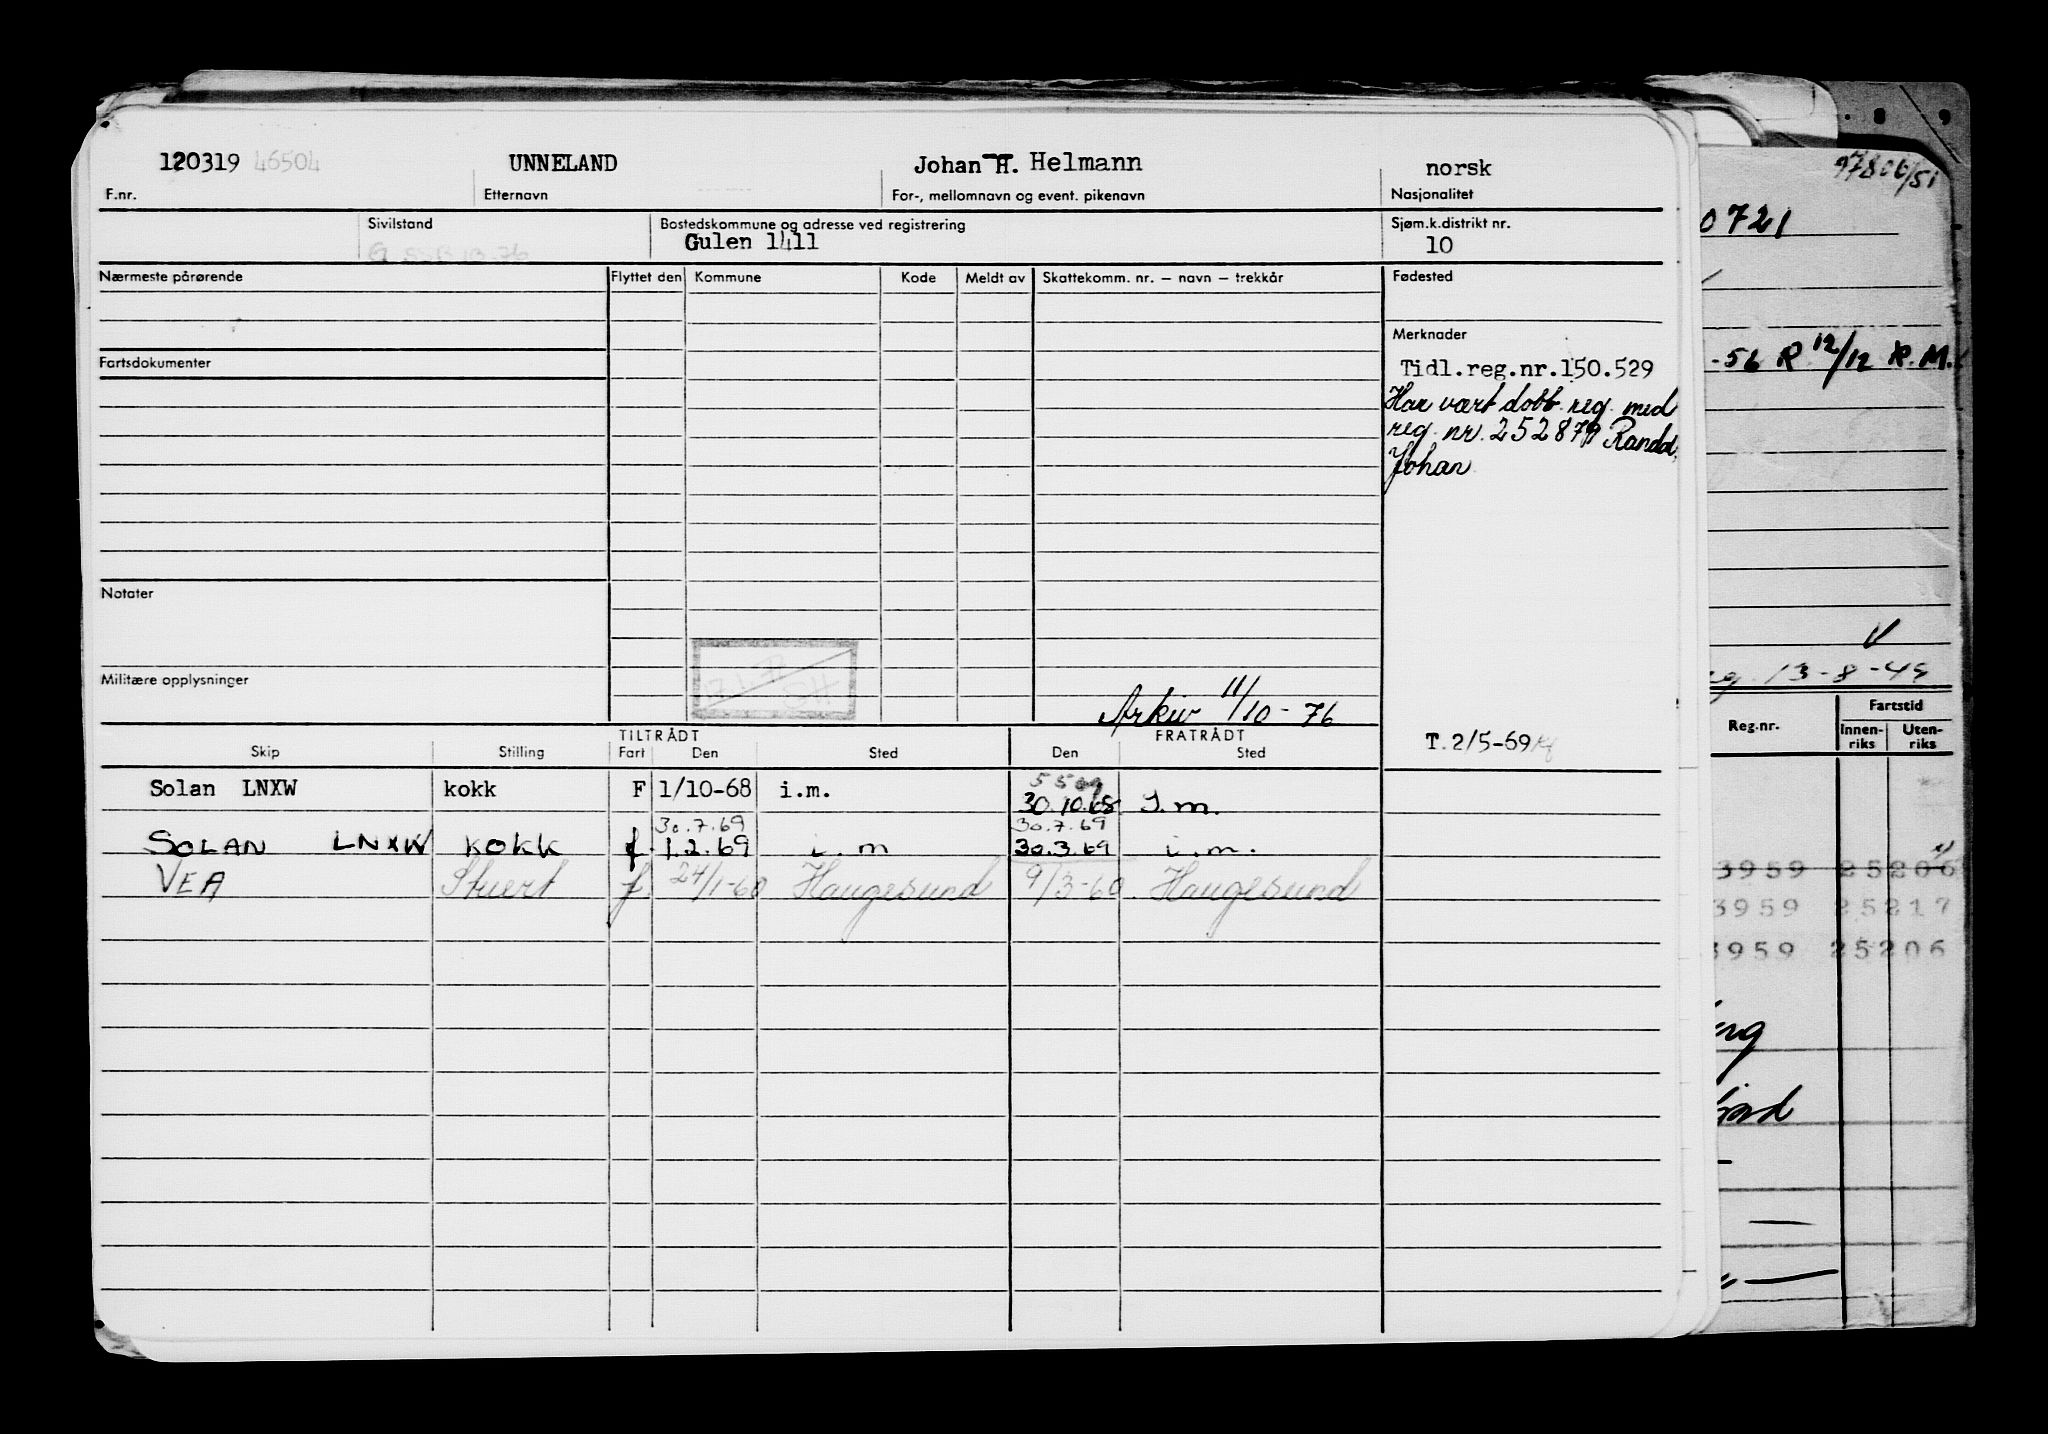 120319 46504 UNNELAND Johan H. Helmann norsk
F.nr. Etternavn For-, mellomnavn og event. pikenavn Nasjonalitet
Sivilstand Bostedskommune og adresse ved registrering Sjøm.k.distrikt nr.
Gulen 1411 10
Nærmeste pårørende Flyttet den Kommune Kode Meldt av Skattekomm. nr. — navn — trekkår Fødested
Merknader
Fartsdokumenter
Tidl.reg.nr.150.529
Har vært dobb. reg. med
reg. nr. 252879 Randal,
Johan
Notater
Militære opplysninger
Arkiv 11/10-76
TILTRÅDT FRATRÅDT
Skip Stilling Fart Den Sted Den Sted
T.2/5-69
Solan LNXW kokk F 1/10-68 i.m. 30.10.68 I.m.
30.7.69 30.7.69
SOLAN LNXW KOKK f 1.2.69 i.m 30.3.69 i.m.
VEA Stuert f 24/1-60 Haugesund 9/3-60 Haugesund
8 9
97806/51
0721
-56 R 12/12 R.M.
13-8-49
Reg.nr. Fartstid
Innen-riks Uten-riks
3959 25206
3959 25217
3959 25206